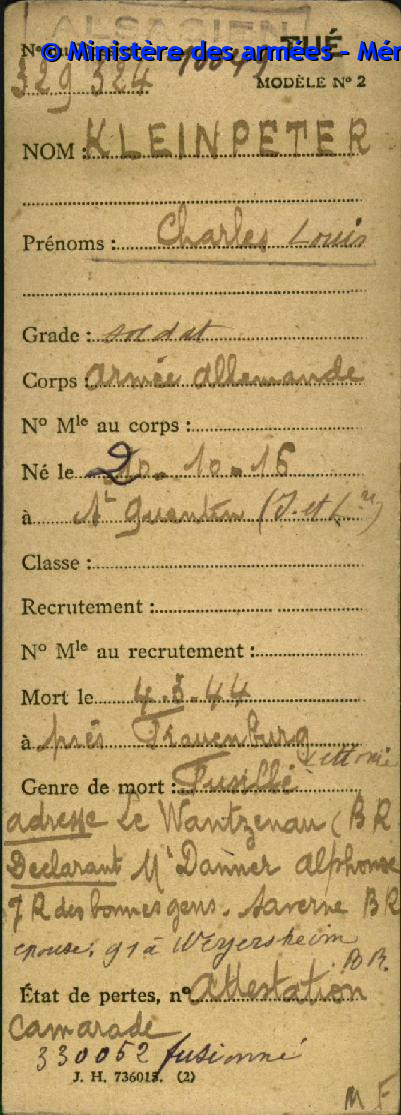 ALSASIEN
© Ministère des armées - Mém
TUÉ
329 324
MODÈLE Nº 2
NOM : KLEINPETER
Prénoms : Charles Louis
Grade : soldat
Corps : armée allemande
Nº Mle au corps :
Né le 20-10-16
à St Quentin (I. et L.re)
Classe :
Recrutement :
Nº Mle au recrutement :
Mort le 4.3.44
à près Frauenburg
Lettonie
Genre de mort : Fusillé
adresse Le Wantzenau (BR
Declarant Mr Danner alphonse
7 R des bonnes gens. Saverne BR
epouse, 91 à Weyersheim
BR.
État de pertes, nº attestation
camarade
330052 fusionné
J. H. 736015. (2)
M F